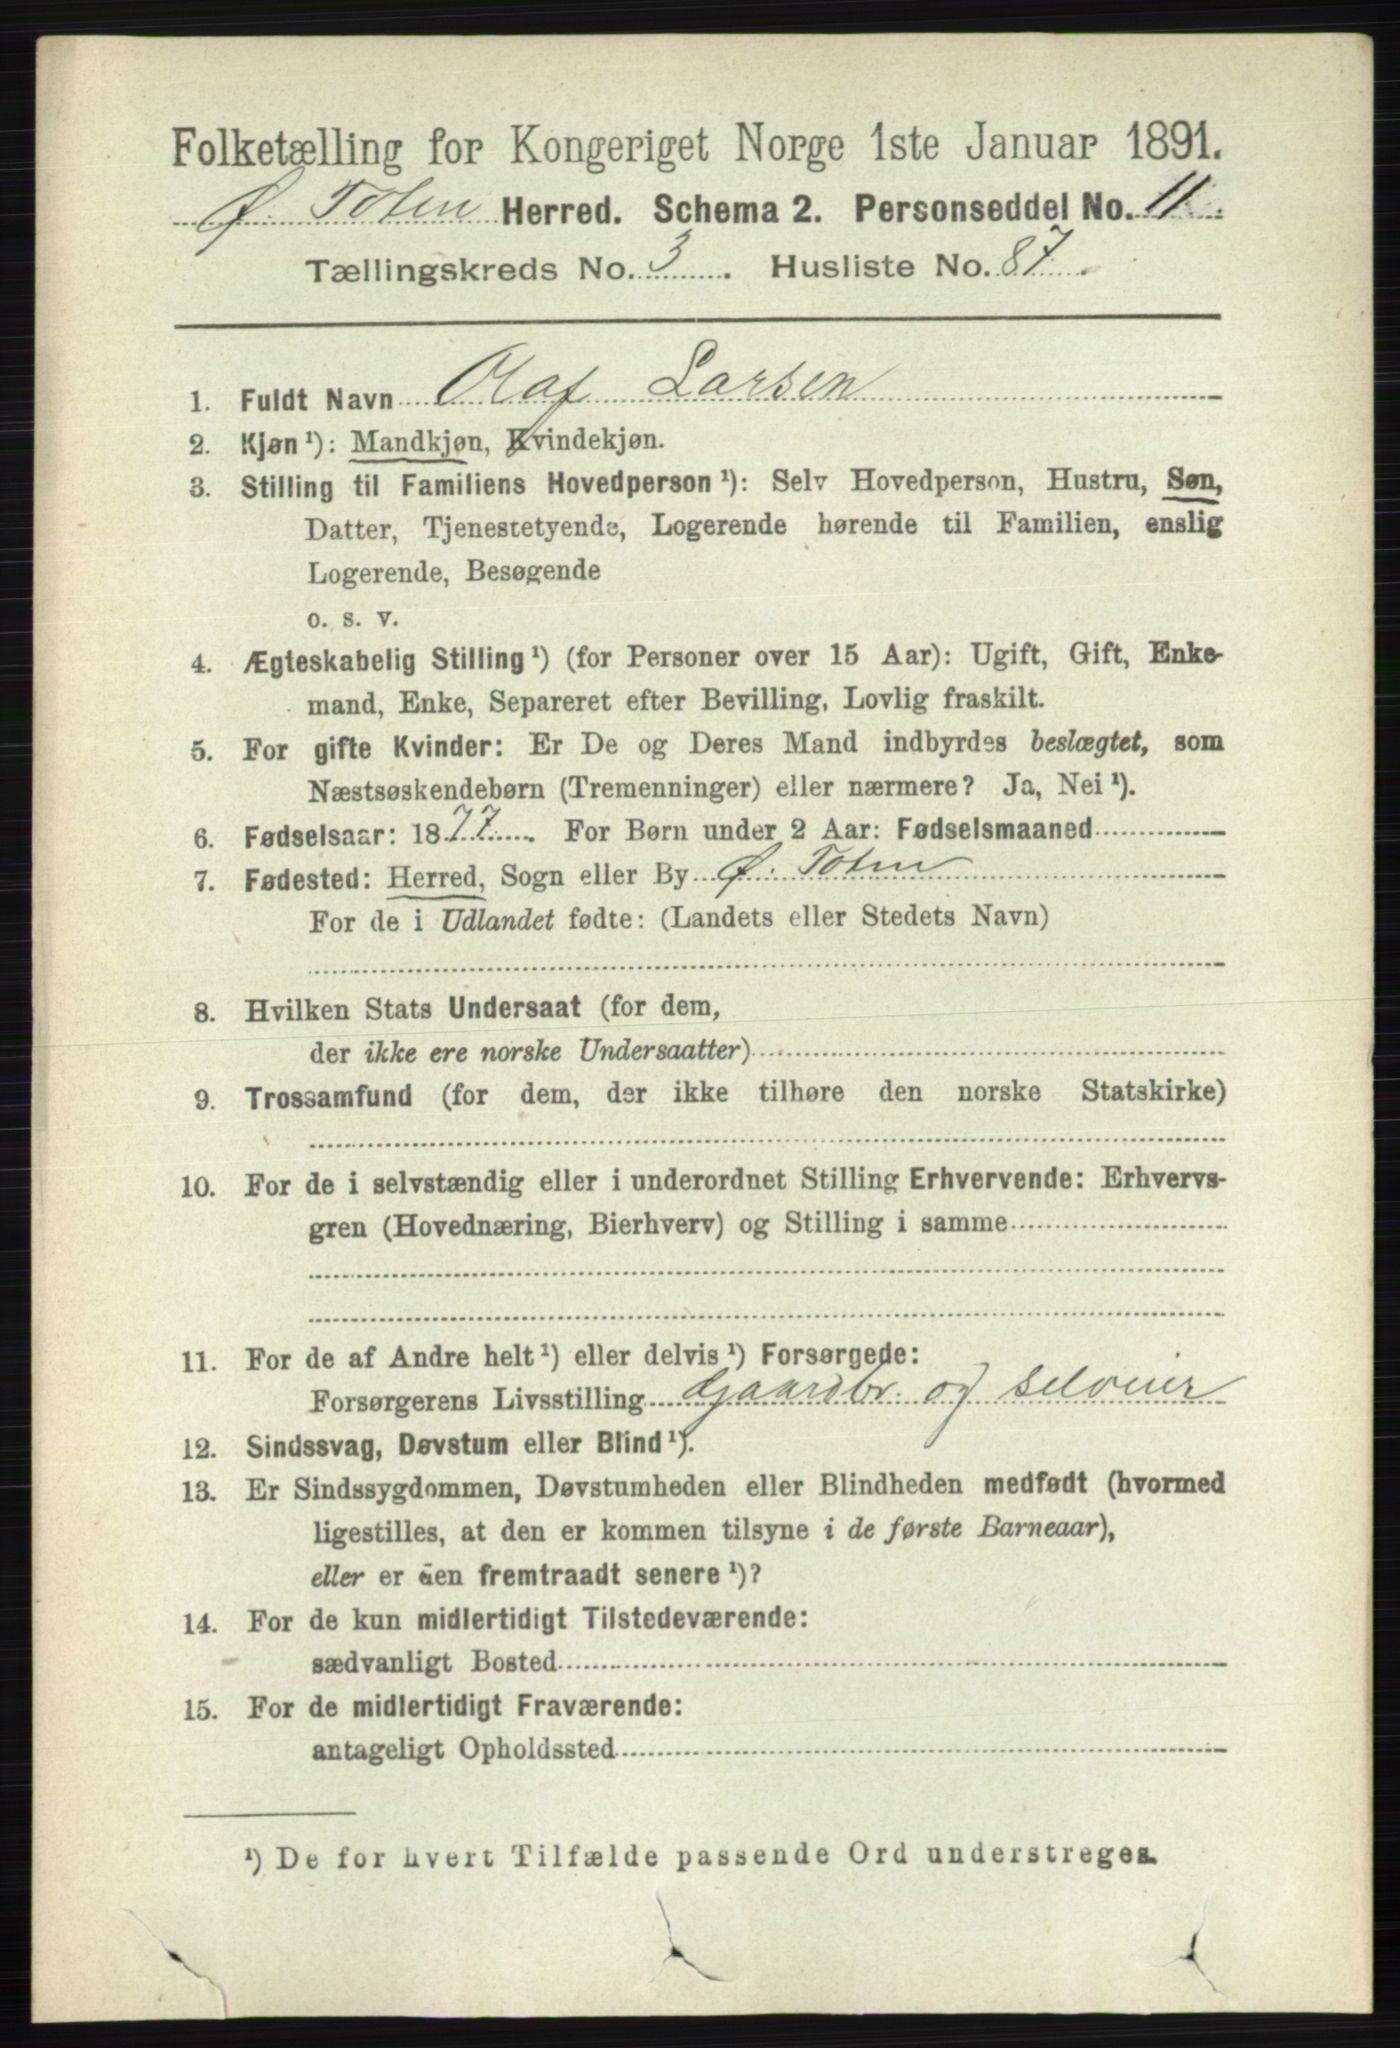 Folketælling for Kongeriget Norge 1ste Januar 1891.
Ø. Toten Herred. Schema 2. Personseddel No. 11.
Tællingskreds No. 3. Husliste No. 87.
1. Fuldt Navn Olaf Larsen
2. Kjøn ¹): Mandkjøn, Kvindekjøn.
3. Stilling til Familiens Hovedperson ¹): Selv Hovedperson, Hustru, Søn,
Datter, Tjenestetyende, Logerende hørende til Familien, enslig
Logerende, Besøgende
o. s. v.
4. Ægteskabelig Stilling ¹) (for Personer over 15 Aar): Ugift, Gift, Enke-
mand, Enke, Separeret efter Bevilling, Lovlig fraskilt.
5. For gifte Kvinder: Er De og Deres Mand indbyrdes beslægtet, som
Næstsøskendebørn (Tremenninger) eller nærmere? Ja, Nei ¹).
6. Fødselsaar: 1877. For Børn under 2 Aar: Fødselsmaaned
7. Fødested: Herred, Sogn eller By Ø. Toten
For de i Udlandet fødte: (Landets eller Stedets Navn)
8. Hvilken Stats Undersaat (for dem,
der ikke ere norske Undersaatter)
9. Trossamfund (for dem, der ikke tilhøre den norske Statskirke)
10. For de i selvstændig eller i underordnet Stilling Erhvervende: Erhvervs-
gren (Hovednæring, Bierhverv) og Stilling i samme
11. For de af Andre helt ¹) eller delvis ¹) Forsørgede:
Forsørgerens Livsstilling Gaardbr. og selveier
12. Sindssvag, Døvstum eller Blind ¹).
13. Er Sindssygdommen, Døvstumheden eller Blindheden medfødt (hvormed
ligestilles, at den er kommen tilsyne i de første Barneaar),
eller er den fremtraadt senere ¹)?
14. For de kun midlertidigt Tilstedeværende:
sædvanligt Bosted
15. For de midlertidigt Fraværende:
antageligt Opholdssted
¹) De for hvert Tilfælde passende Ord understreges.